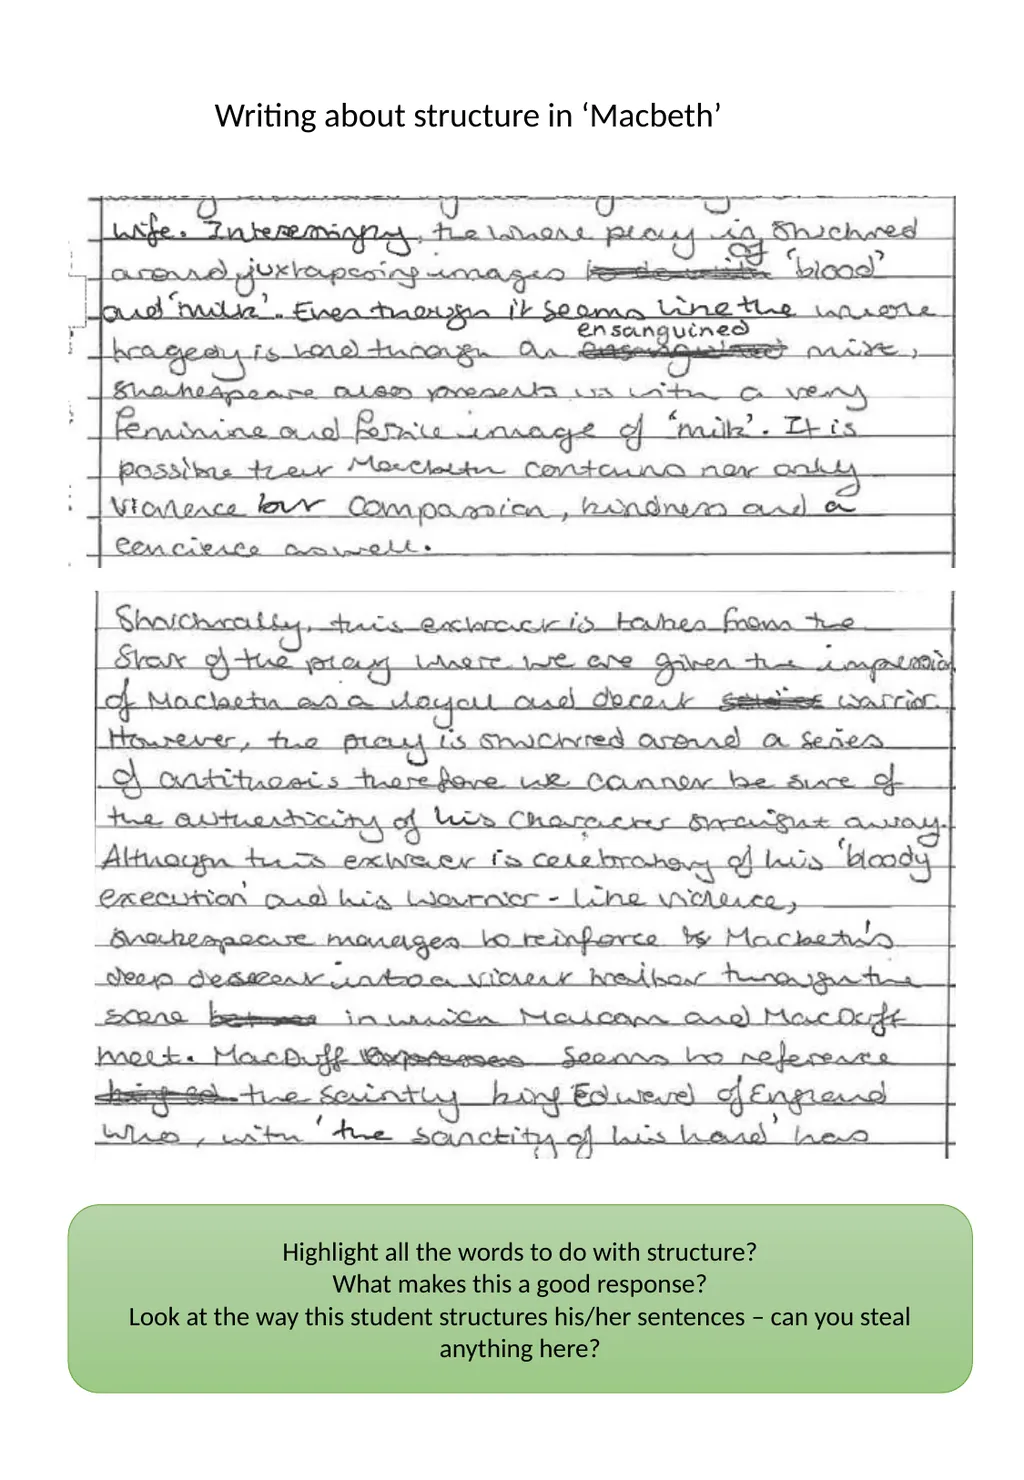 Writing about structure in ‘Macbeth’
wife. Interestingly, the whole play is structured
around juxtaposing images of 'blood'
and 'milk'. Even though it seems like the whole
tragedy is told through an ensanguined mist,
Shakespeare also presents us with a very
feminine and fertile image of 'milk'. It is
possible that Macbeth contains not only
violence but compassion, kindness and a
concience aswell.
Structurally, this extract is taken from the
start of the play where we are given the impression
of Macbeth as a loyal and decent warrior.
However, the play is structured around a series
of antithesis therefore we cannot be sure of
the authenticity of his character straight away.
Although this extract is celebratory of his 'bloody
execution' and his warrior-like violence,
Shakespeare manages to reinforce Macbeth's
deep descent into a violent traitor through the
scene in which Malcom and MacDuff
meet. MacDuff seems to reference
the saintly king Edward of England
who, with 'the sanctity of his hand' has
Highlight all the words to do with structure?
What makes this a good response?
Look at the way this student structures his/her sentences – can you steal
anything here?